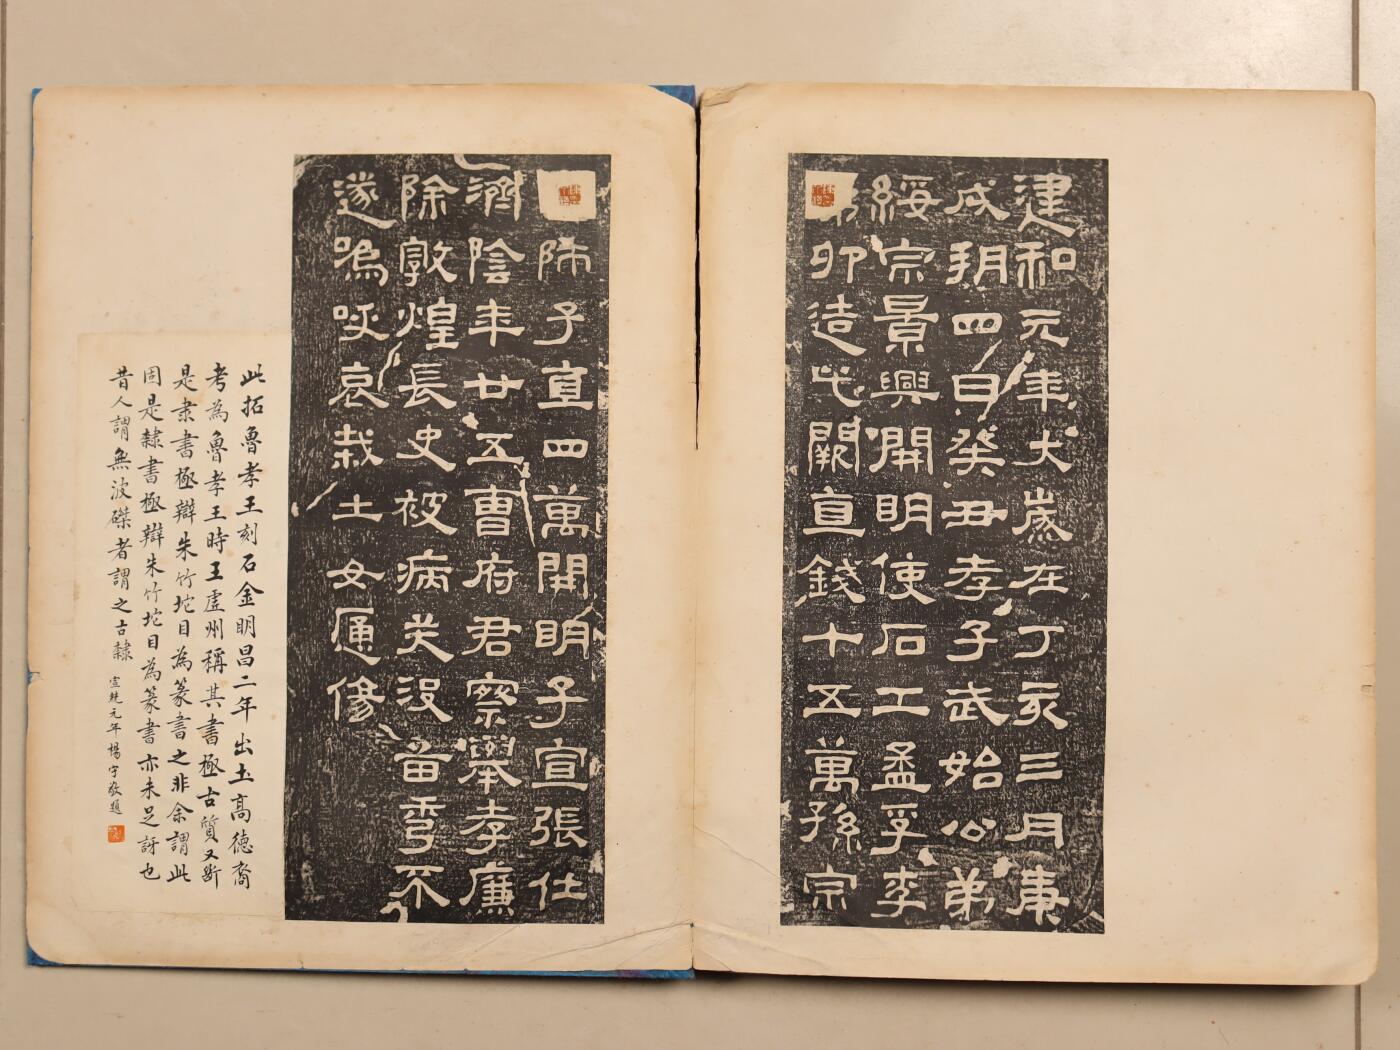 建和元年大歲在丁亥三月庚
戌朔四日癸丑孝子武始公弟
綏宗景興開明使石工孟孚李
弟卯造此闕直錢十五萬孫宗
師子直四萬開明子宣張仕
濟陰年廿五曹府君察舉孝廉
除敦煌長史被病夭没苗秀不
遂嗚呼哀哉士女
此拓魯孝王刻石金明昌二年出土高德裔
考為魯孝王時王虛州稱其書極古質又斷
是隶書極辯朱竹坨目為篆書之非余謂此
固是隸書極辯朱竹坨目為篆書亦未足訝也
昔人謂無波磔者謂之古隸 宣統元年楊守敬題